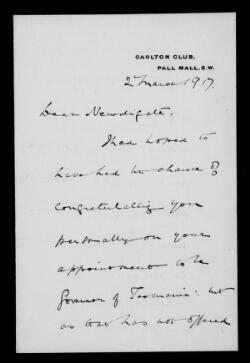 CARLTON CLUB,
PALL MALL. S.W.
2 March 1917.
Dear Newdigate.
I had hoped to
have had the chance of
congratulating you
personally on your
appointment to be
Governor of Tasmania: but
as that has not offered